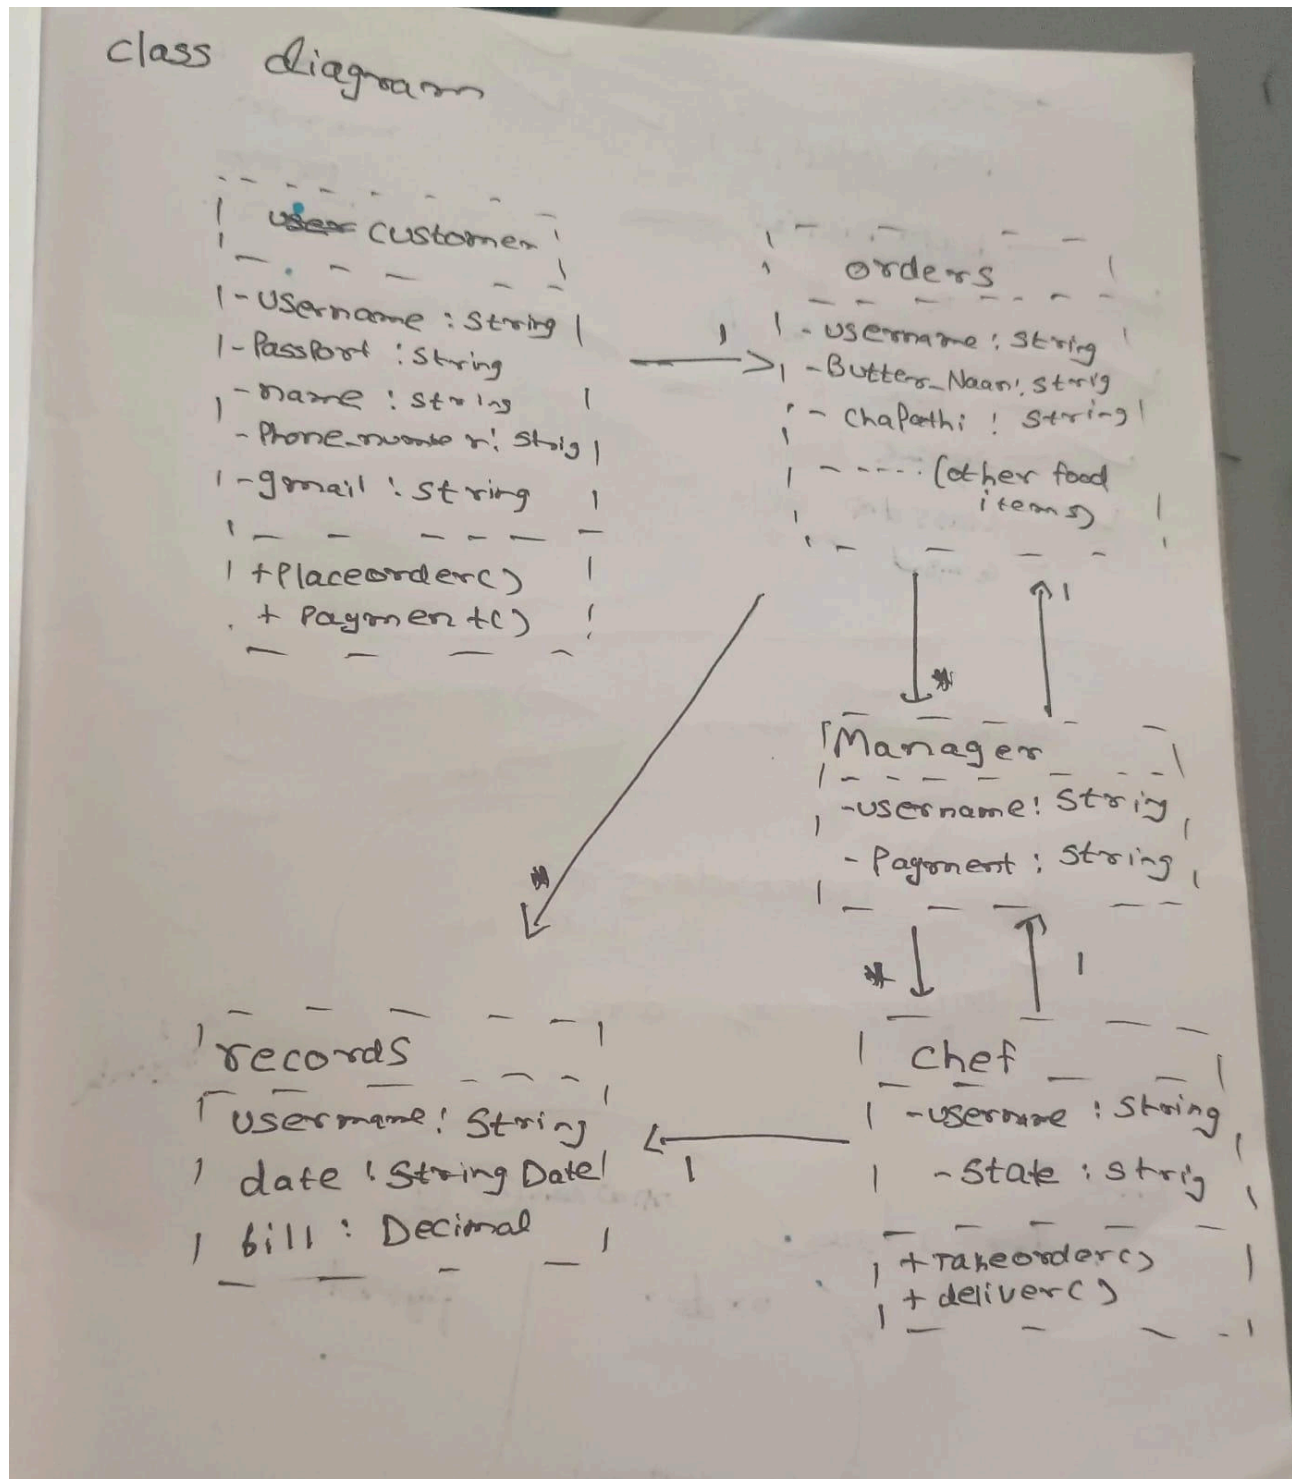 class diagram
customer
- username : String
- Passport : String
- name : string
- Phone_number : Strig
- gmail : string
+ Placeorder()
+ Payment()
orders
- username : String
- Butter_Naan : strig
- Chapathi : String
- ---- (other food
items)
1
*
1
Manager
- username : String
- Payment : String
*
*
1
records
username : String
date : String Date
bill : Decimal
1
Chef
- username : String
- State : Strig
+ Takeorder()
+ deliver()